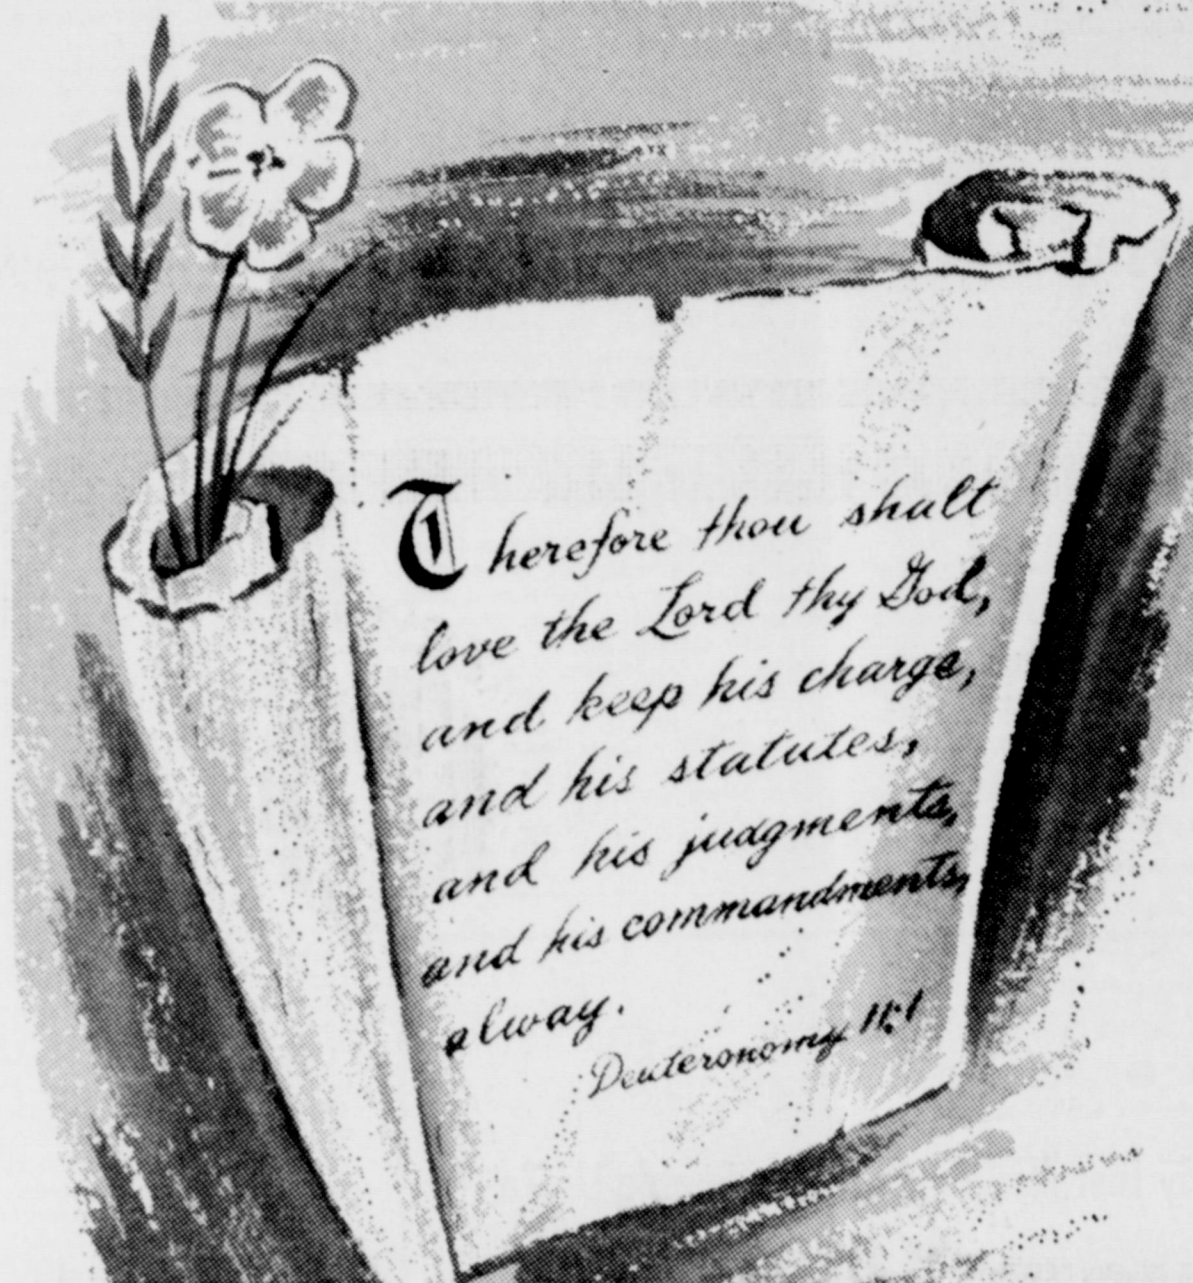 Therefore thou shalt
love the Lord thy God,
and keep his charge,
and his statutes,
and his judgments,
and his commandments,
alway.
Deuteronomy 11:1